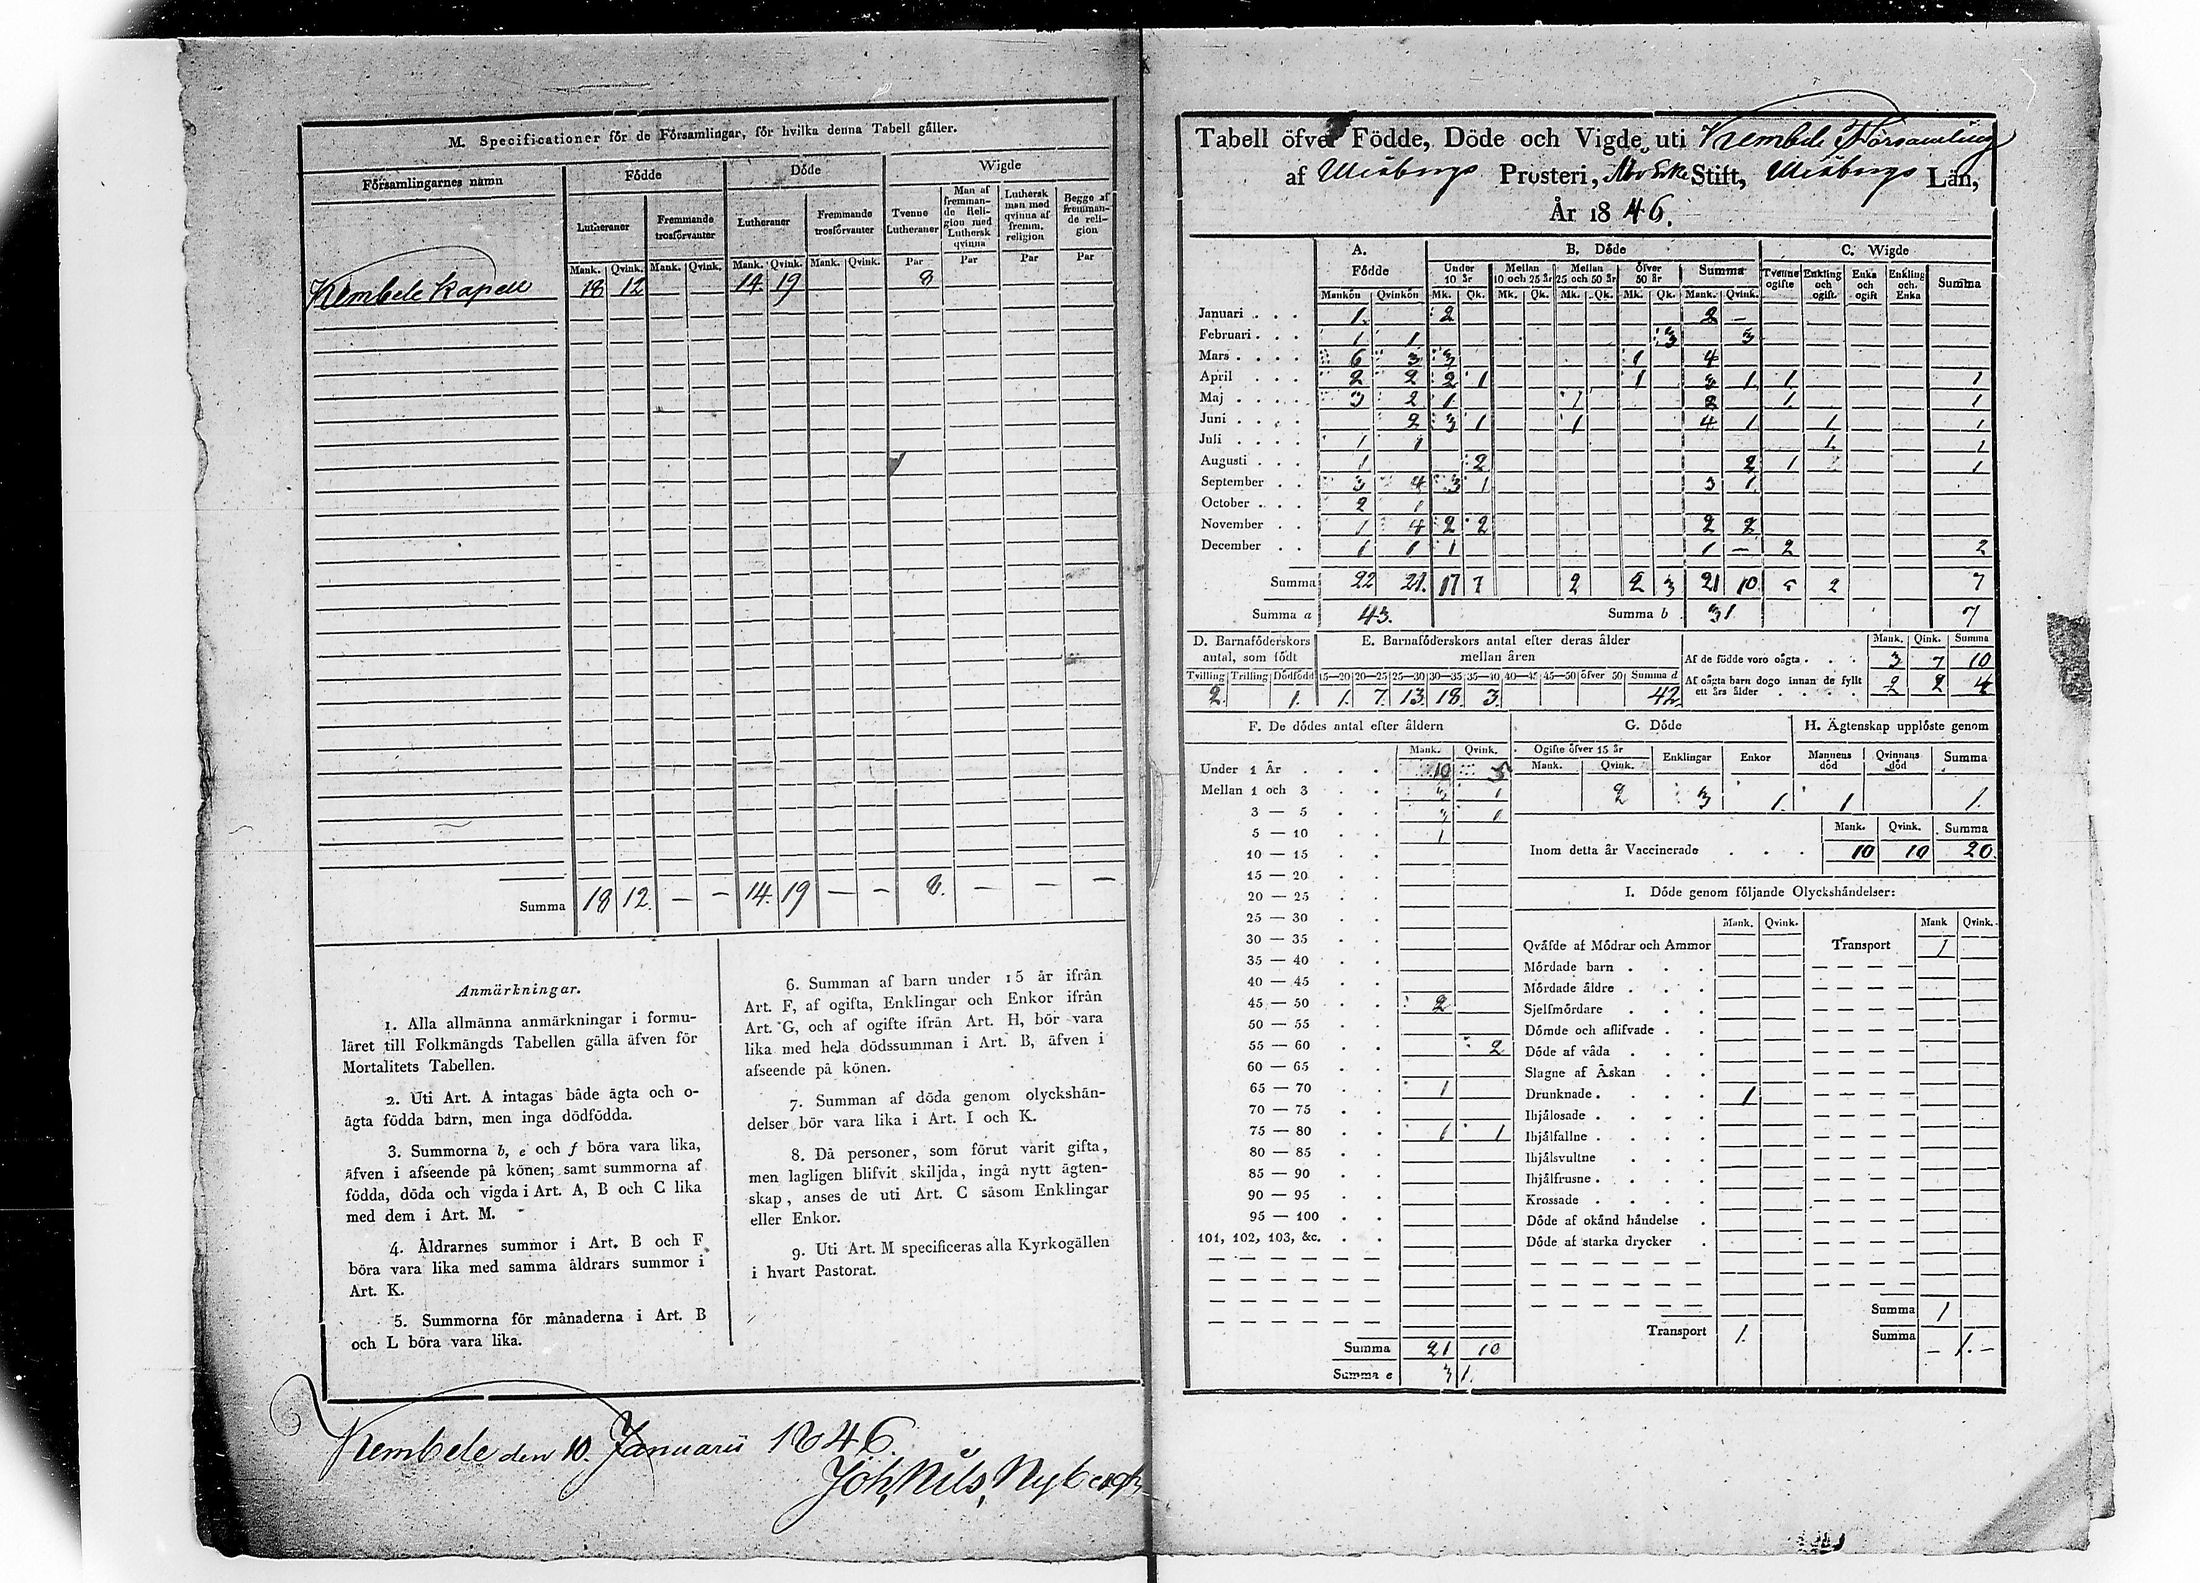 M. Specificationer för de Församlingar, för hvilka denna Tabell gäller.
Församlingarnes namn | Födde | Döde | Wigde
Lutheraner | Fremmande trosförvanter | Lutheraner | Fremmande trosförvanter | Tvenne Lutheraner | Man af fremmande Religion med Luthersk qvinna | Luthersk man med qvinna af fremm. religion | Begge af fremmande religion
Mank. | Qvink. | Mank. | Qvink. | Mank. | Qvink. | Mank. | Qvink. | Par | Par | Par | Par
Kembele Kapell | 18 | 12 | | | 14 | 19 | | | 8
Summa | 18 | 12. | — | — | 14. | 19 | — | — | 8. | — | — | —
Anmärkningar.
1. Alla allmänna anmärkningar i formu-
läret till Folkmängds Tabellen gälla äfven för
Mortalitets Tabellen.
2. Uti Art. A intagas både ägta och o-
ägta födda barn, men inga dödfödda.
3. Summorna b, e och f böra vara lika,
äfven i afseende på könen; samt summorna af
födda, döda och vigda i Art. A, B och C lika
med dem i Art. M.
4. Åldrarnes summor i Art. B och F
böra vara lika med samma åldrars summor i
Art. K.
5. Summorna för månaderna i Art. B
och L böra vara lika.
6. Summan af barn under 15 år ifrån
Art. F, af ogifta, Enklingar och Enkor ifrån
Art. G, och af ogifte ifrån Art. H, bör vara
lika med hela dödssumman i Art. B, äfven i
afseende på könen.
7. Summan af döda genom olyckshän-
delser bör vara lika i Art. I och K.
8. Då personer, som förut varit gifta,
men lagligen blifvit skiljda, ingå nytt ägten-
skap, anses de uti Art. C såsom Enklingar
eller Enkor.
9. Uti Art. M specificeras alla Kyrkogällen
i hvart Pastorat.
Kembele den 10. Januarii 1846.
Joh. Nils. Nyberg
Tabell öfver Födde, Döde och Vigde, uti Kembele Församling
af Uleåborgs Prosteri, Stift, Uleåborgs Län,
År 1846.
A. Födde | B. Döde | C. Wigde
Under 10 år | Mellan 10 och 25 år | Mellan 25 och 50 år | Öfver 50 år | Summa | Tvenne ogifte | Enkling och ogift | Enka och ogift | Enkling och Enka | Summa
Mankön | Qvinkön | Mk. | Qk. | Mk. | Qk. | Mk. | Qk. | Mk. | Qk. | Mank. | Qvink.
Januari | 1. | | 2 | | | | | | | | 2 | —
Februari | 1 | 1 | | | | | | | | 3 | | 3
Mars | 6 | 3 | 3 | | | | | | 1 | | 4
April | 2 | 2 | 2 | 1 | | | | | 1 | | 3 | 1 | 1 | | | | 1
Maj | 3 | 2 | 1 | | | | 1 | | | | 2 | | 1. | | | | 1
Juni | | 2 | 3 | 1 | | | 1 | | | | 4 | 1 | | 1 | | | 1
Juli | 1 | 1 | | | | | | | | | | | | 1. | | | 1
Augusti | 1 | | | 2 | | | | | | | | 2 | 1 | | | | 1
September | 3 | 4 | 3 | 1 | | | | | | | 3 | 1
October | 2 | 1
November | 1 | 4 | 2 | 2 | | | | | | | 2 | 2
December | 1 | 1 | 1 | | | | | | | | 1 | — | 2 | | | | 2
Summa | 22 | 21. | 17 | 7 | | | 2 | | 2 | 3 | 21 | 10. | 5 | 2 | | | 7
Summa a | 43. | Summa b | 31 | 7
D. Barnaföderskors antal, som födt
Tvilling | Trilling | Dödfödd
2. | | 1.
E. Barnaföderskors antal efter deras ålder mellan åren
15—20 | 20—25 | 25—30 | 30—35 | 35—40 | 40—45 | 45—50 | öfver 50 | Summa d
1. | 7. | 13. | 18. | 3. | | | | 42
Mank. | Qink. | Summa
Af de födde voro oägta | 3 | 7 | 10
Af oägta barn dogo innan de fyllt ett års ålder | 2 | 2 | 4
F. De dödes antal efter åldern
Mank. | Qvink.
Under 1 År | 10 | 5
Mellan 1 och 3 | 3 | 1
3 — 5 | 3 | 1
5 — 10 | 1
10 — 15
15 — 20
20 — 25
25 — 30
30 — 35
35 — 40
40 — 45
45 — 50 | 2
50 — 55
55 — 60 | | 2
60 — 65
65 — 70 | 1
70 — 75
75 — 80 | 1 | 1
80 — 85
85 — 90
90 — 95
95 — 100
101, 102, 103, &c.
Summa | 21 | 10
Summa e | 31.
G. Döde
Ogifte öfver 15 år | Enklingar | Enkor
Mank. | Qvink.
| 2 | 3 | 1.
H. Ägtenskap upplöste genom
Mannens död | Qvinnans död | Summa
1 | | 1.
Mank. | Qvink. | Summa
Inom detta år Vaccinerade | 10 | 10 | 20.
I. Döde genom följande Olyckshändelser:
Mank. | Qvink. | | Mank | Qvink.
Qväfde af Mödrar och Ammor | | | Transport | 1
Mördade barn
Mördade äldre
Sjelfmördare
Dömde och aflifvade
Döde af våda
Slagne af Åskan
Drunknade | 1
Ihjälosade
Ihjälfallne
Ihjälsvultne
Ihjälfrusne
Krossade
Döde af okänd händelse
Döde af starka drycker
Summa | 1
Transport | 1. | Summa | — 1. —